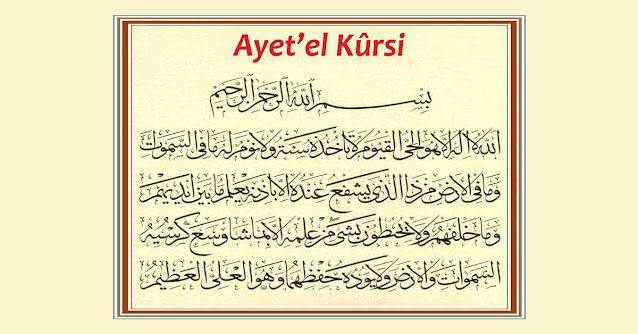 Ayet'el Kûrsi
بِسْمِ اللهِ الرَّحْمٰنِ الرَّحِيمِ
اَللهُ لَا اِلٰهَ اِلَّا هُوَ الْحَىُّ الْقَيُّومُ لَا تَاْخُذُهُ سِنَةٌ وَلَا نَوْمٌ لَهُ مَا فِى السَّمٰوَاتِ
وَمَا فِى الْاَرْضِ مَنْ ذَا الَّذِى يَشْفَعُ عِنْدَهُ اِلَّا بِاِذْنِهِ يَعْلَمُ مَا بَيْنَ اَيْدِيهِمْ
وَمَا خَلْفَهُمْ وَلَا يُحِيطُونَ بِشَىْءٍ مِنْ عِلْمِهِ اِلَّا بِمَا شَاءَ وَسِعَ كُرْسِيُّهُ
السَّمٰوَاتِ وَالْاَرْضَ وَلَا يَؤُدُهُ حِفْظُهُمَا وَهُوَ الْعَلِىُّ الْعَظِيمُ